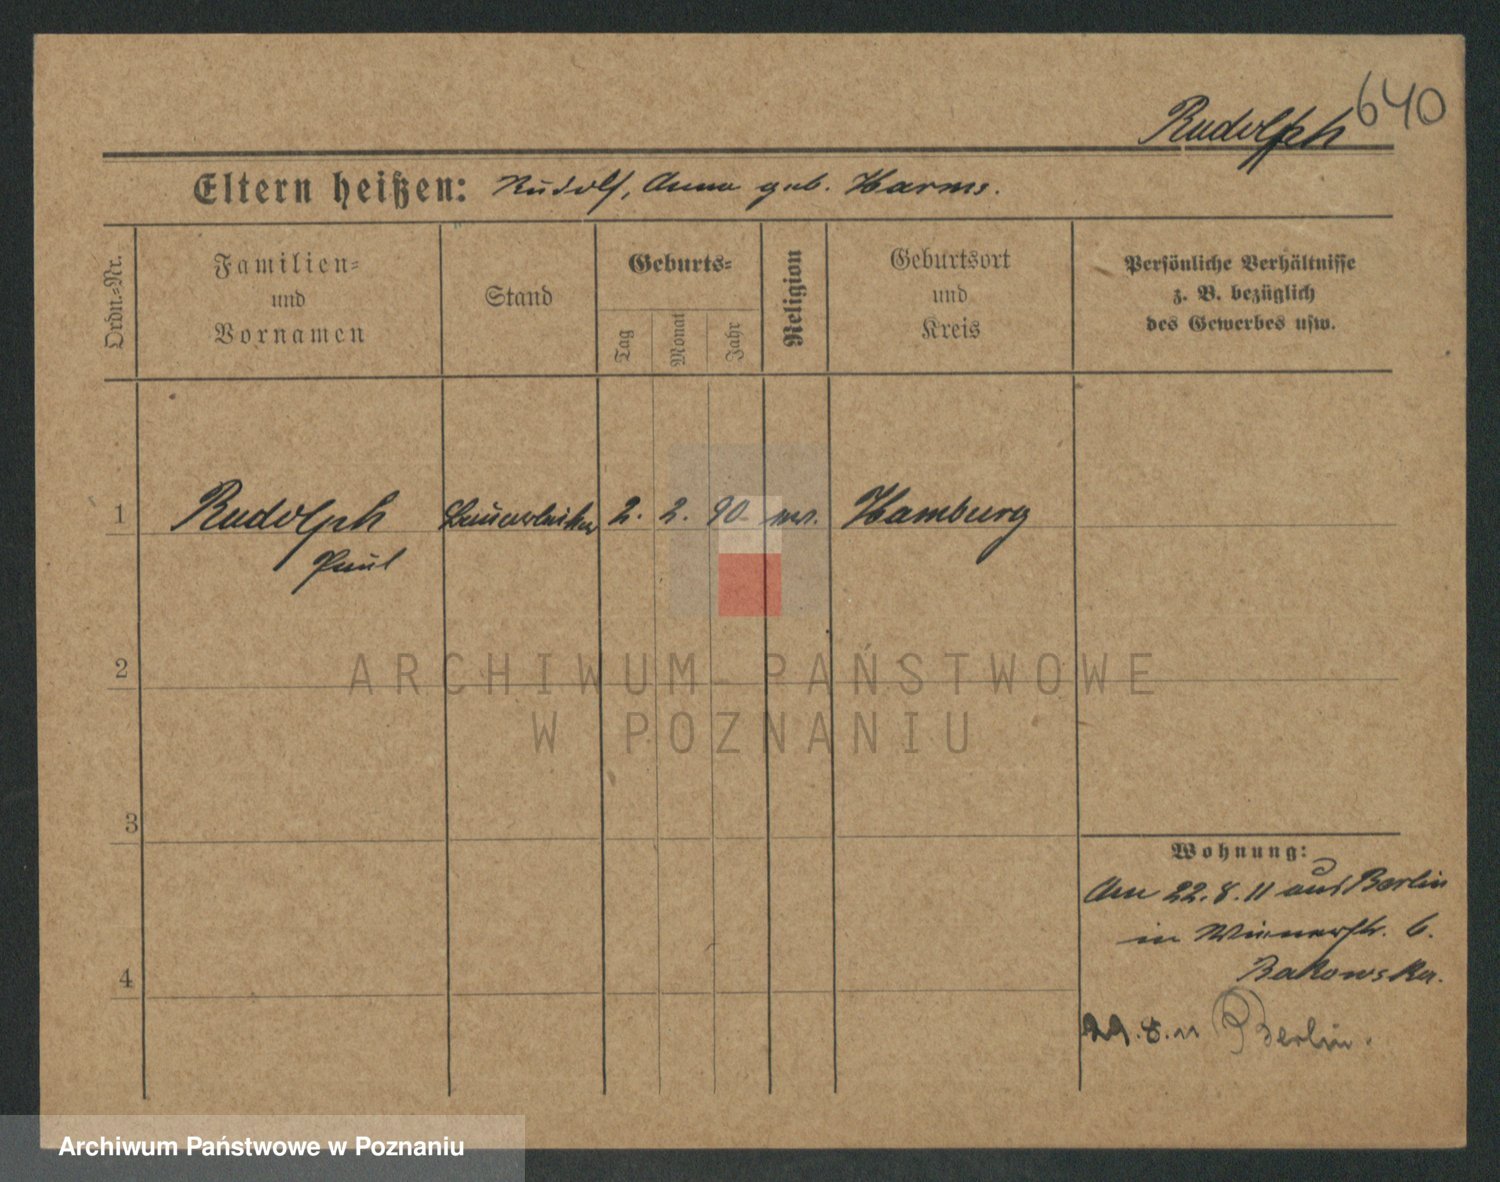 640
Rudolph
Eltern heißen: Rudolf, Anna geb. Harms.
Ordn.-Nr.
Familien-
und
Vornamen
Stand
Geburts-
Tag
Monat
Jahr
Religion
Geburtsort
und
Kreis
Persönliche Verhältnisse
z. B. bezüglich
des Gewerbes usw.
1 Rudolph 2. 2. 90. Hamburg
Paul
2
3
4
Wohnung:
Am 22.8.11 aus Berlin
in Wienerstr. 6.
Bakowska.
29.8.11 Berlin.
ARCHIWUM PAŃSTWOWE
W POZNANIU
Archiwum Państwowe w Poznaniu